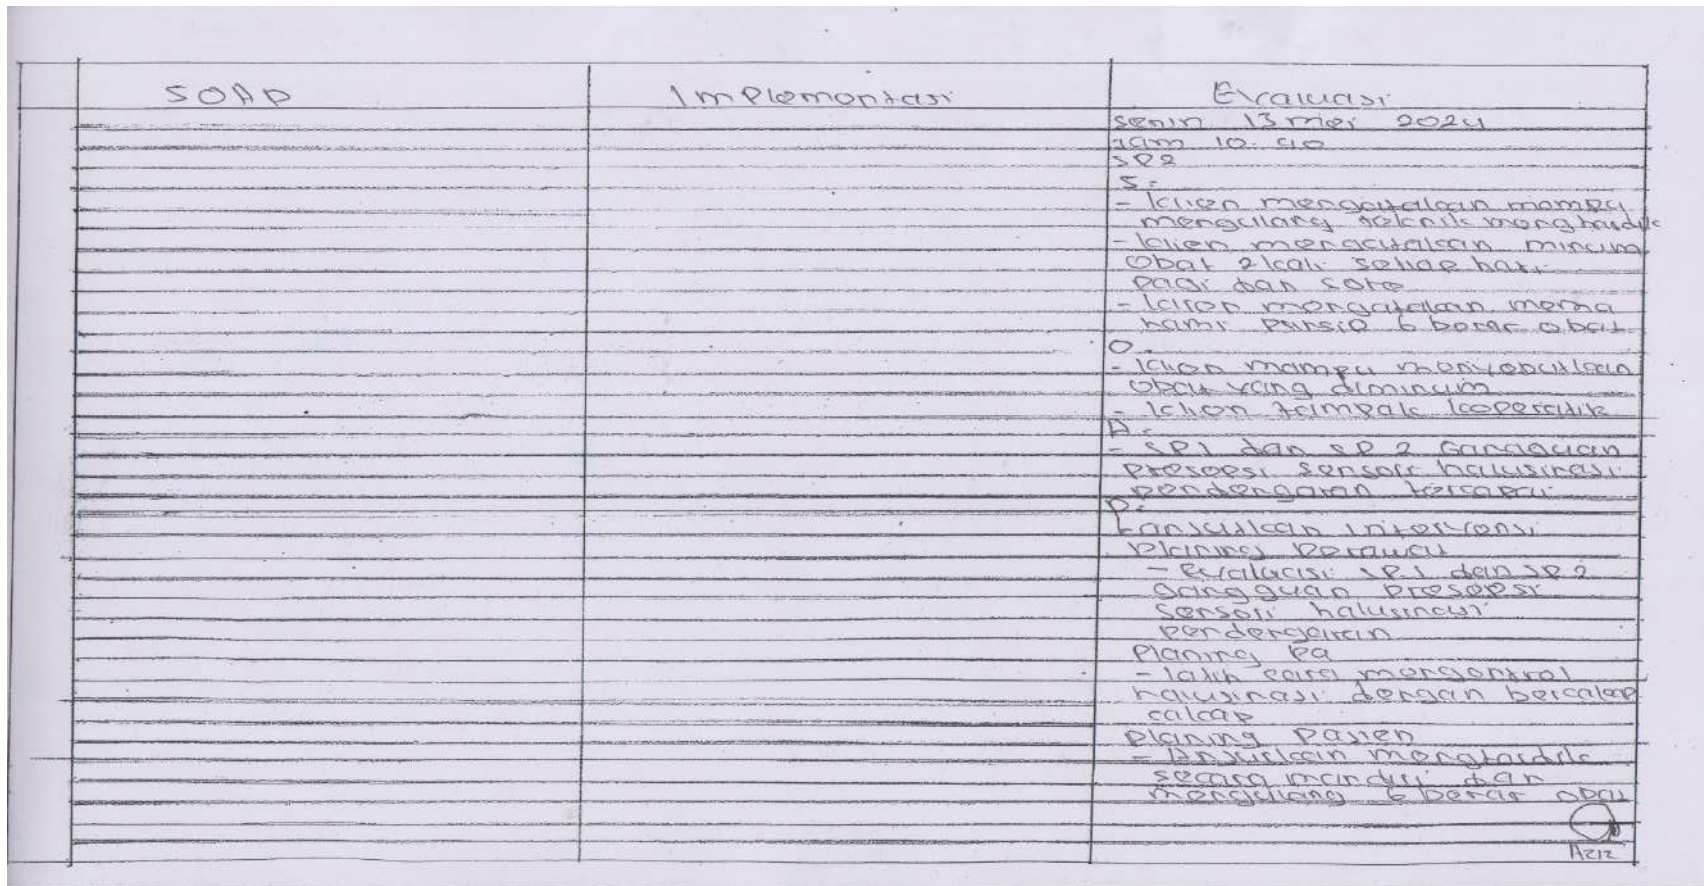 SOAP
Implementasi
Evaluasi
Senin 13 mei 2024
Jam 10.40
SP2
S:
- klien mengatakan mampu
mengulang teknik menghardik
- klien mengatakan minum
obat 2 kali setiap hari
pagi dan sore
- klien mengatakan mema
hami prinsip 6 benar obat
O:
- klien mampu menyebutkan
obat yang diminum
- klien tampak kooperatif
A:
- SP1 dan SP 2 Ganguan
presepsi sensori halusinasi
pendengaran tercapai
P:
Lanjutkan intervensi
Planing perawat
- Evaluasi SP1 dan SP2
gangguan presepsi
sensori halusinasi
pendengaran
Planing
- latih cara mengontrol
halusinasi dengan bercakap
cakap
Planing Pasien
- Anjurkan menghardik
secara mandiri dan
mengulang 6 benar obat
Aziz